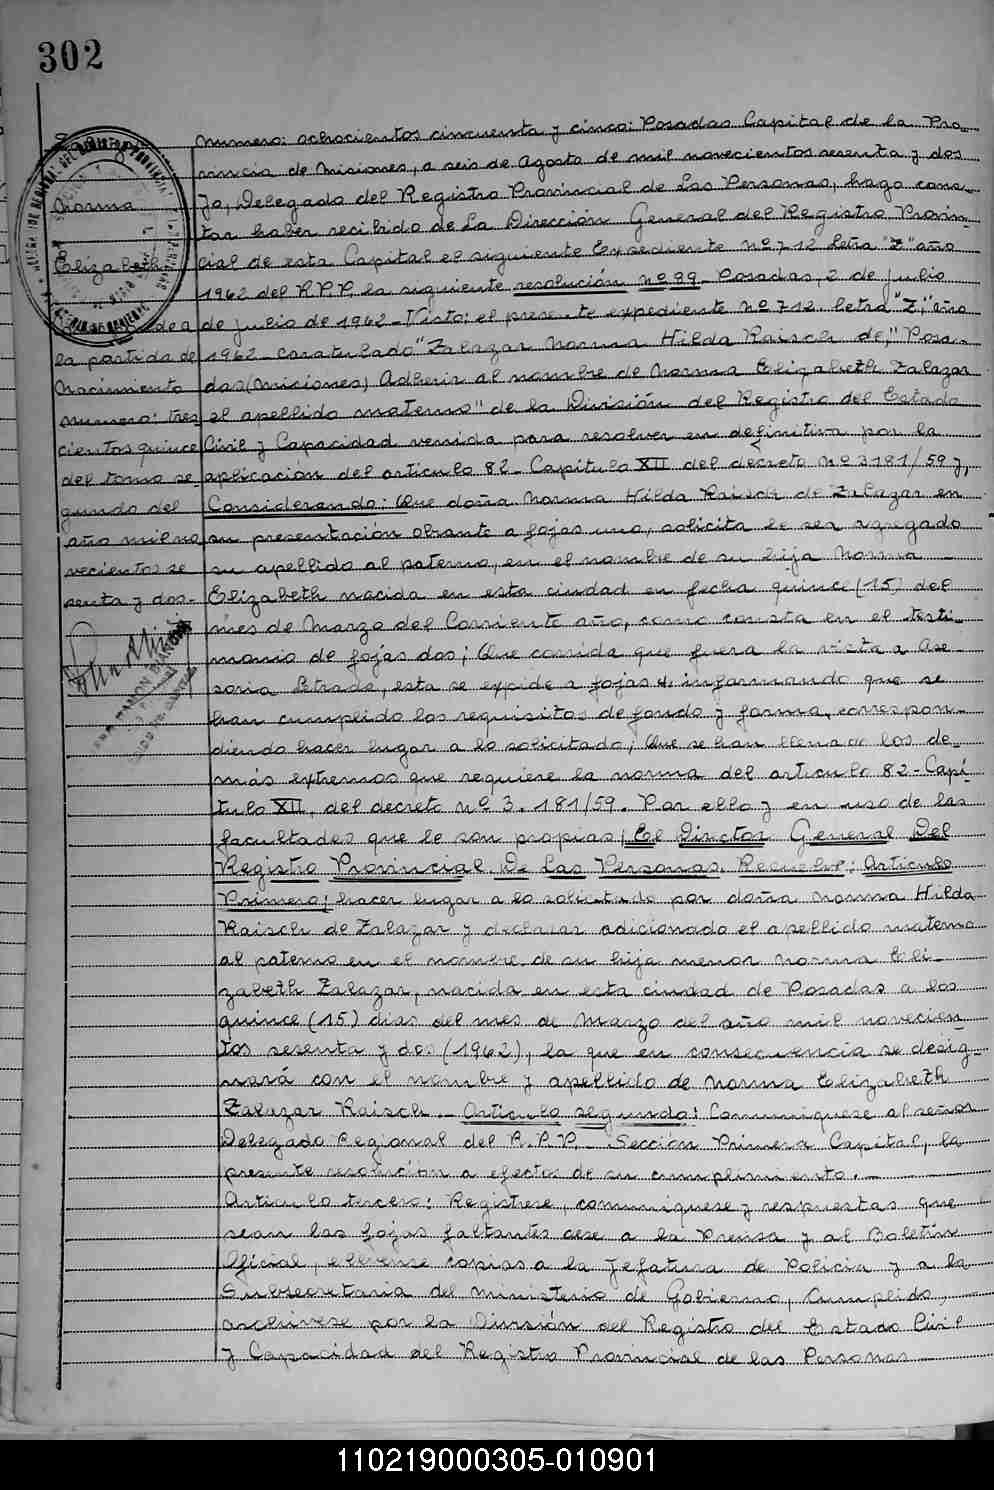 302
Norma
Elizabeth
la partida de
Nacimiento
número: tres
cientos quince
del tomo se
gundo del
año mil no
vecientos se
senta y dos.-
Numero: ochocientos cincuenta y cinco: Posadas Capital de la Pro-
vincia de Misiones, a seis de Agosto de mil novecientos sesenta y dos
Yo, Delegado del Registro Provincial de Las Personas, hago cons-
tar haber recibido de La Dirección General del Registro Provin-
cial de esta Capital el siguiente Expediente nº 712 Letra "Z" año
1962 del R.P.P. la siguiente resolución nº 99.- Posadas, 2 de Julio
de Julio de 1962.- Visto: el presente expediente nº 712 letra "Z", año
1962 - caratulado "Zalazar Norma Hilda Raisch de," Posa-
das (Misiones) Adherir al nombre de Norma Elizabeth Zalazar
el apellido materno" de la División del Registro del Estado
Civil y Capacidad venida para resolver en definitiva por la
aplicación del articulo 82 - Capitulo XII del decreto nº 3181/59 y,
Considerando: Que doña Norma Hilda Raisch de Zalazar en
su presentación obrante a fojas uno, solicita le ser agregado
su apellido al paterno, en el nombre de su hija Norma
Elizabeth nacida en esta ciudad en fecha quince (15) del
mes de Marzo del Corriente año, como consta en el testi-
monio de fojas dos; Que corrida que fuera la vista a Ase-
soria Letrada, esta se expide a fojas 4, informando que se
han cumplido los requisitos de fondo y forma, correspon-
diendo hacer lugar a lo solicitado; Que se han llenado los de-
más extremos que requiere la norma del articulo 82 - Capí-
tulo XII, del decreto nº 3.181/59. Por ello y en uso de las
facultades que le son propias: El Director General Del
Registro Provincial De Las Personas. Resuelve: Articulo
Primero; hacer lugar a lo solicitado por doña Norma Hilda
Raisch de Zalazar y declarar adicionado el apellido materno
al paterno en el nombre de su hija menor Norma Eli-
zabeth Zalazar, nacida en esta ciudad de Posadas a los
quince (15) dias del mes de Marzo del año mil novecien-
tos sesenta y dos (1962), la que en consecuencia se desig-
nará con el nombre y apellido de Norma Elizabeth
Zalazar Raisch.- Articulo segundo: Comuniquese al señor
Delegado Regional del R.P.P.- Sección Primera Capital, la
presente resolución a efectos de su cumplimiento.-
Articulo tercero: Registrese, comuniquese y respuestas que
sean las fojas faltantes dese a la Prensa y al Boletín
Oficial, elévense copias a la Jefatura de Policia y a la
Subsecretaria del Ministerio de Gobierno, Cumplido,
archivese por la División del Registro del Estado Civil
y Capacidad del Registro Provincial de las Personas
110219000305-010901